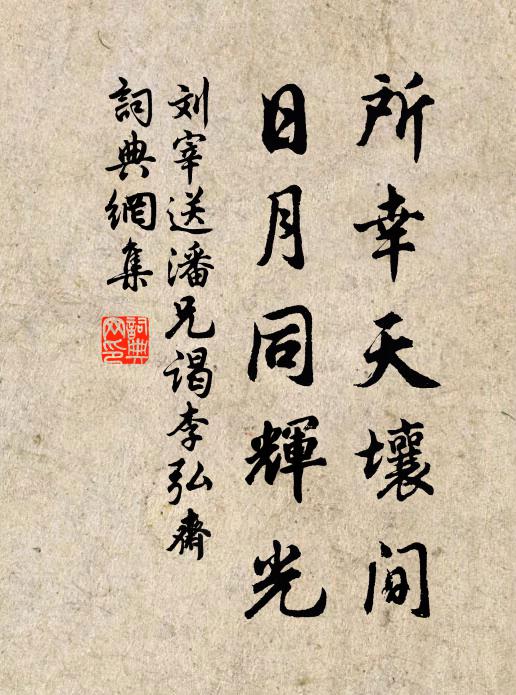 所幸天壤间
日月同輝光
刘宰送潘兄谒李弘齋
詞典網集
詞典網印